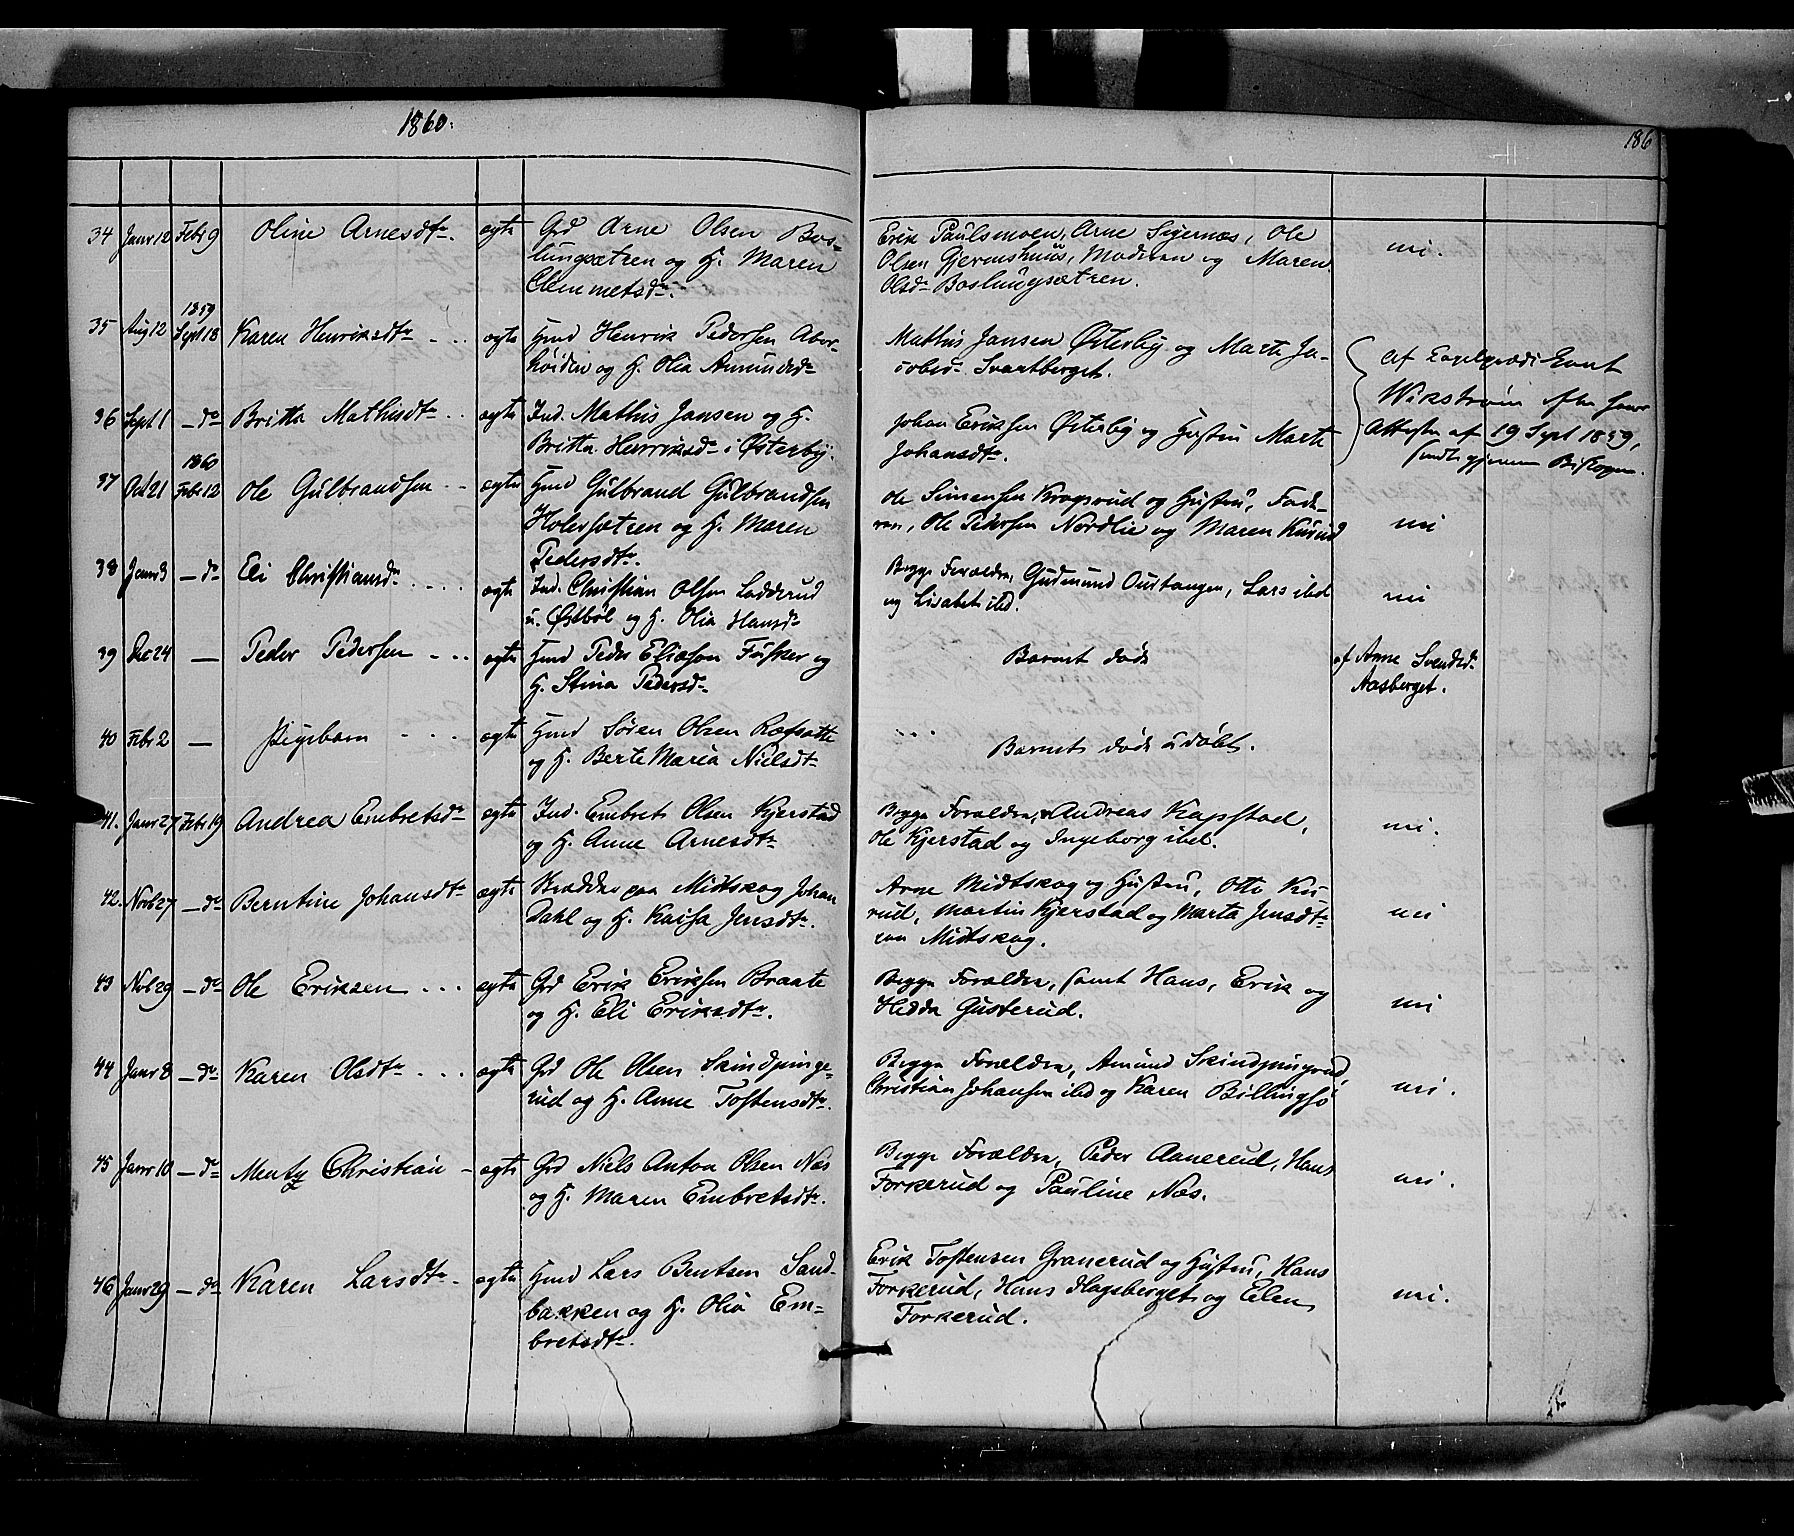 1860.
186
34 Janr 12 Febr 9 Oline Arnesdtr. ægte Grd Arne Olsen Bos-
lungsætren og H. Maren
Clemmetsdr.
Erik Paulsmoen, Arne Sigernæs, Ole
Olsen Gjermshuus, Moderen og Maren
Olsdr Boslungsætren.
ni.
35 Aug 12 1859 Sept 18 Karen Henriksdtr ægte Hmd Henrik Pedersen Abor-
høiden og H. Olia Amundsdr
Mathis Jansen Østerby og Marte Ja-
cobsd. Svartberget.
af
Wikström efter hans
Attester af 19 Sept 1859,
sendt gjennem Bispen.
36 Sept 1 – do Britta Mathisdtr ægte Ind. Mathis Jansen og H.
Britta Henriksdr i Østerby.
Johan Eriksen Østerby og Hustru Marte
Johansdtr.
37 Oct 21 1860 Febr 12 Ole Gulbrandsen ægte Hmd Gulbrand Gulbrandsen
Holersætren og H. Maren
Pedersdtr.
Ole Simensen Kragsrud og Hustru, Fade-
ren, Ole Pedersen Nordlie og Maren Kurud
ni
38 Janr 3 – do Eli Christiansdr ægte Ind. Christian Olsen Ladderud
u. Østbøl og H. Olia Hansdr
Begge Forældre, Gudmund Oustangen, Lars ibd
og Lisabet ibd.
ni
39 Dec 24 – Peder Pedersen ægte Hmd Peder Eliason Fusker og
H. Stina Pedersdr
Barnet døde
af Anne Svendsdr
Aasberget.
40 Febr 2 – Pigebarn ægte Hmd Søren Olsen Ræfsætte
og H. Berte Maria Nielsdtr
Barnet døde udøbt.
41. Janr 27 Febr 19 Andrea Embretsdr ægte Ind. Embret Olsen Kjerstad
og H. Anne Arnesdtr
Begge Forældre, Andreas Kapstad,
Ole Kjerstad og Ingeborg ibd.
ni.
42. Novb 27 – do Berntine Johansdtr ægte paa Midtskog Johan
Dahl og H. Kaisa Jensdtr.
Arne Midtskog og Hustru, Otto Ku-
rud, Martin Kjerstad og Marta Jensdtr
paa Midtskog.
ni
43 Novb 29 – do Ole Eriksen ægte Grd Erik Eriksen Braate
og H. Eli Eriksdtr.
Begge Forældre, samt Hans, Erik og
Hedda Gusterud.
ni
44 Janr 8 – do Karen Olsdtr ægte Grd Ole Olsen Skindpunge-
rud og H. Anne Tostensdtr.
Begge Forældre, Amund Skindpungrud,
Christian Johansen ibd og Karen Billingsø
ni.
45 Janr 10 – do Mentz Christian ægte Grd Niels Anton Olsen Næs
og H. Maren Embretsdtr.
Begge Forældre, Peder Aanerud, Hans
Forkerud og Pauline Næs.
ni.
46 Janr 29 – do Karen Larsdtr ægte Hmd Lars Bentsen Sand-
bakken og H. Olia Em-
bretsdtr.
Erik Tostensen Granerud og Hustru, Hans
Forkerud, Hans Hagsberget og Elen
Forkerud.
ni.